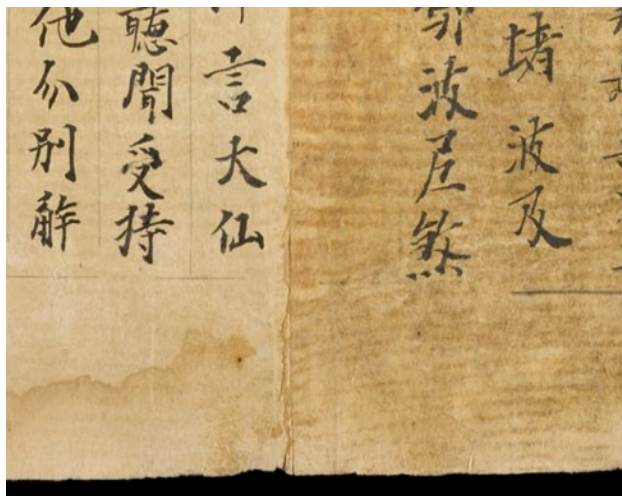 堵波及
波尼煞
言大仙
聽聞受持
他分別解